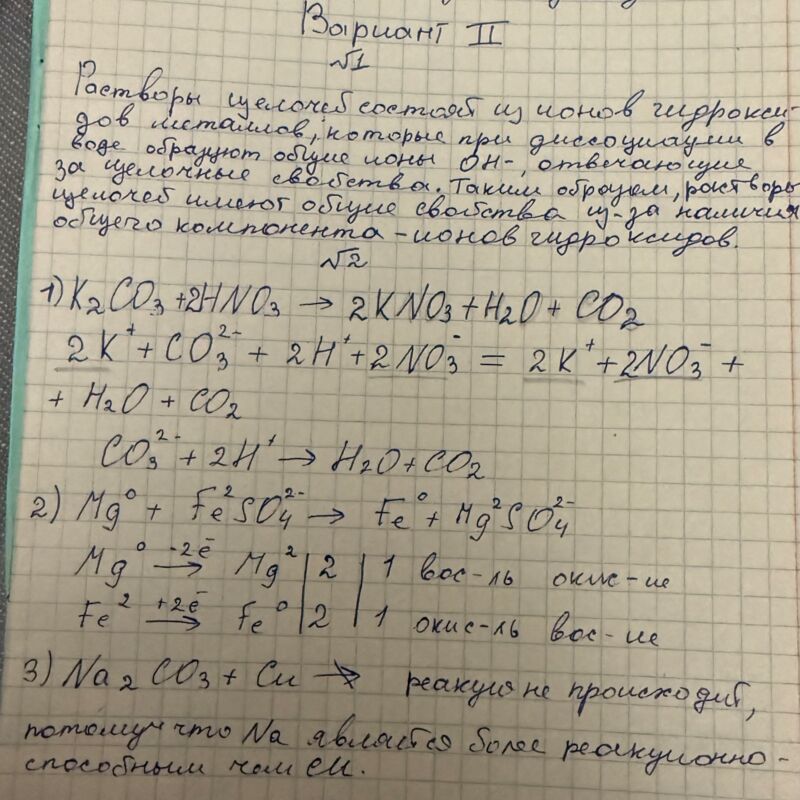 Вариант II
√1
Растворы щелочей состоят из ионов гидрокси-
дов металлов, которые при диссоциации в
воде образуют общие ионы OH-, отвечающие
за щелочные свойства. Таким образом, растворы
щелочей имеют общие свойства из-за наличия
общего компонента - ионов гидроксидов.
√2
1) K₂CO₃ + 2HNO₃ → 2KNO₃ + H₂O + CO₂
2K⁺ + CO₃²⁻ + 2H⁺ + 2NO₃⁻ = 2K⁺ + 2NO₃⁻ +
+ H₂O + CO₂
CO₃²⁻ + 2H⁺ → H₂O + CO₂
2) Mg⁰ + Fe²SO₄²⁻ → Fe⁰ + Mg²SO₄²⁻
Mg⁰ -2ē→ Mg² | 2 | 1 вос-ль окис-ие
Fe² +2ē→ Fe⁰ | 2 | 1 окис-ль вос-ие
3) Na₂CO₃ + Cu ↛ реакция не происходит,
потому что Na является более реакционно-
способным чем Cu.